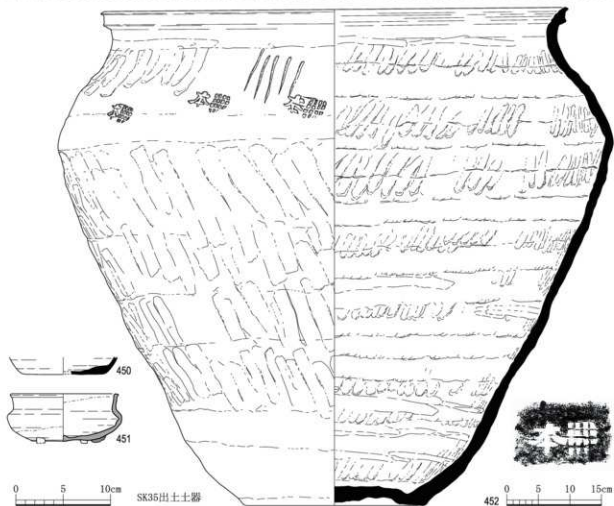 450
451
0 5 10cm
SK35出土土器
452
0 5 10 15cm